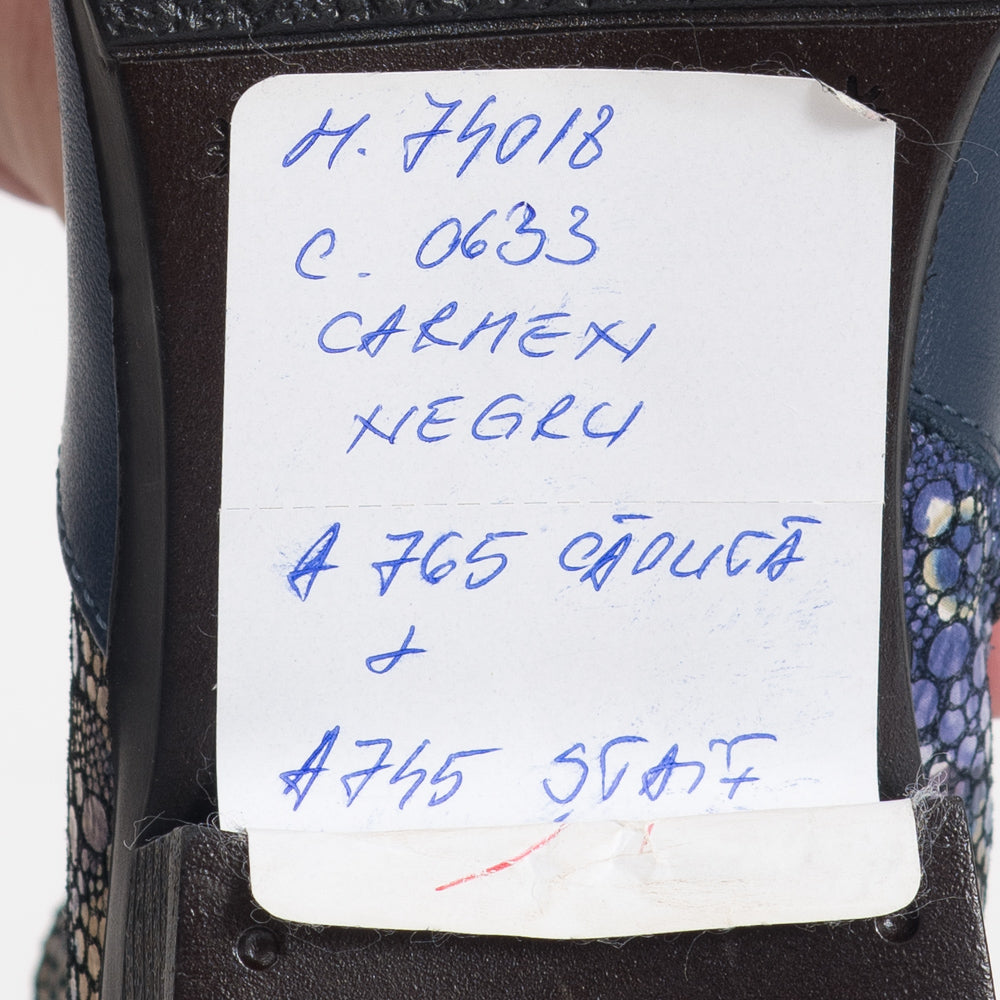 M. 74018
C. 0633
CARMEN
NEGRU
A 765 CĂPUTĂ
+
A745